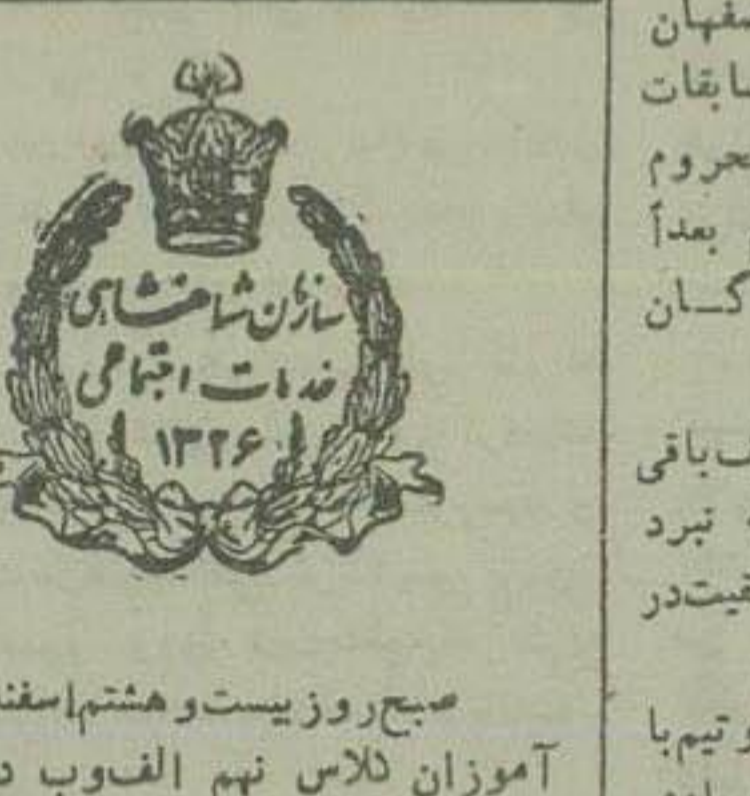 سازمان شاهنشاهی
خدمات اجتماعی
۱۳۲۶
صبح روز بیست و هشتم اسفند
آموزان کلاس نهم الف و ب د
صفهان
سابقات
محروم
بعداً
کـــان
ف باقی
نبرد
قیت در
و تیم با